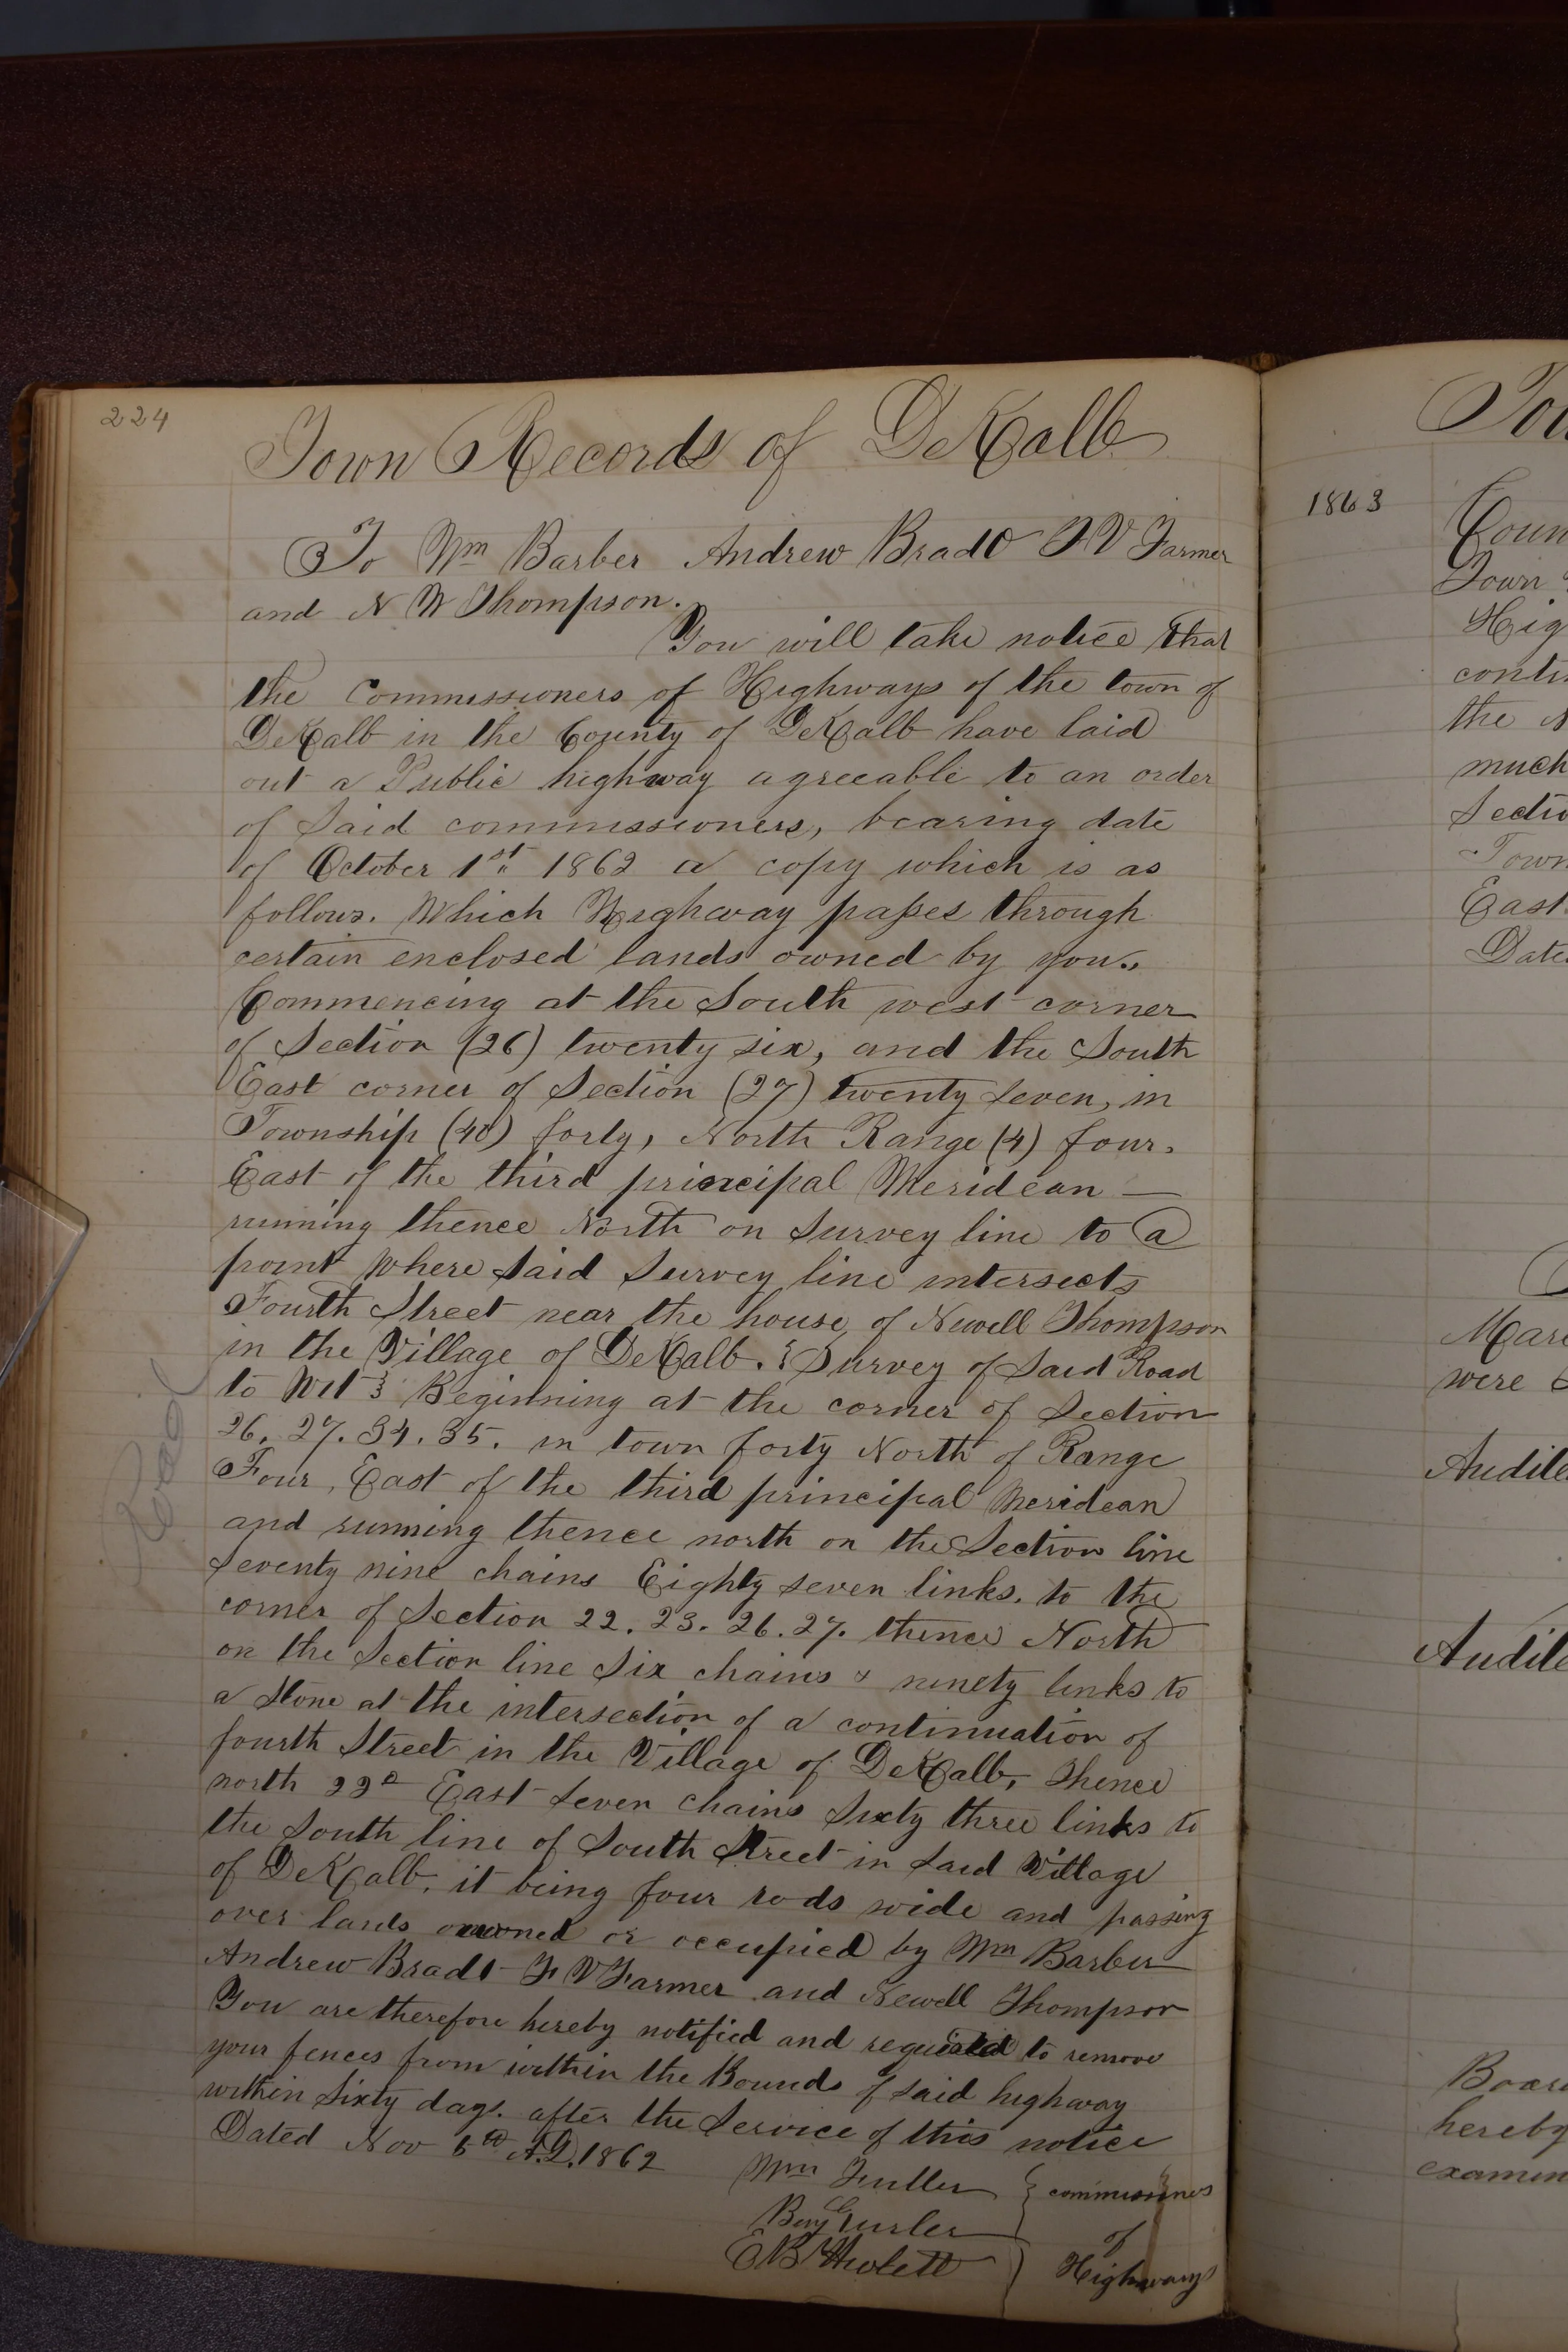 224
Town Records of DeKalb
To Wm Barber Andrew Bradt F V Farmer
and N W Thompson.
You will take notice that
the Commissioners of Highways of the town of
DeKalb in the County of DeKalb have laid
out a Public highway agreeable to an order
of Said commissioners, bearing date
of October 1st 1862 a copy which is as
follows. Which Highway passes through
certain enclosed lands owned by you.
Commencing at the South west corner
of Section (26) twenty six, and the South
East corner of Section (27) twenty seven, in
Township (40) forty, North Range (4) four.
East of the third principal Meridean —
running thence North on Survey line to a
point Where Said Survey line intersects
Fourth Street near the house of Newell Thompson
in the Village of DeKalb. { Survey of Said Road
to Wit } Beginning at the corner of Section
26. 27. 34. 35. in town forty North of Range
Four, East of the third principal Meridean
and running thence north on the Section line
Seventy nine chains Eighty seven links. to the
corner of Section 22. 23. 26. 27. thence North
on the Section line Six chains & ninety links to
a Stone at the intersection of a continuation of
fourth Street in the Village of DeKalb, Thence
north East Seven chains Sixty three links to
the South line of South Street in Said Village
of DeKalb. it being four rods wide and passing
over lands owned or occupied by Wm Barber
Andrew Bradt F V Farmer and Newell Thompson
You are therefore hereby notified and required to remove
your fences from within the Bounds of Said highway
within Sixty days. after the Service of this notice
Dated Nov A.D. 1862
Wm Fuller } commissioners
Gurler of
E B Hulett ) Highways
Road
1863
Tow
Coun
Town
Hig
conti
the N
much
Sectio
Town
East
Date
Mar
were
Audite
Audite
Boar
hereby
examin